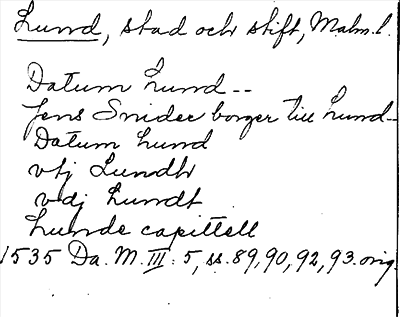 Lund, stad och stift, Malm. l.
Datum Lund--
Jens Snidee borger till Lund--
Datum Lund
vtj Lundh
vdj Lundt
Lunde capittell
1535 Da. M. III: 5, ss. 89, 90, 92, 93. orig.